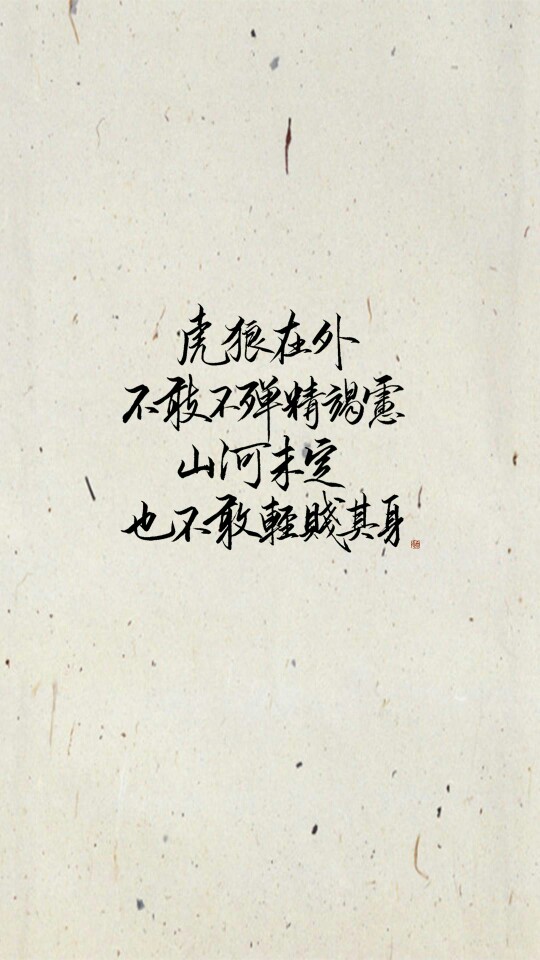 虎狼在外
不敢不殫精竭慮
山河未定
也不敢輕賤其身